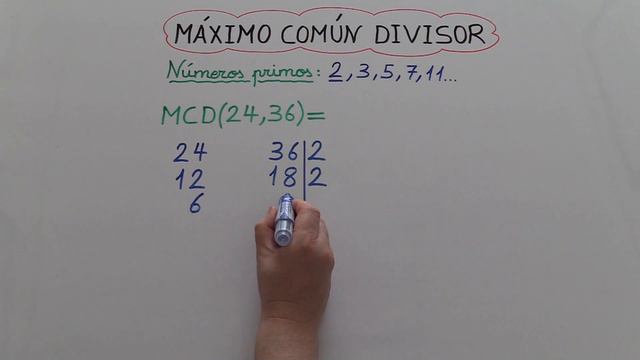 MÁXIMO COMÚN DIVISOR
Números primos: 2, 3, 5, 7, 11...
MCD(24,36)=
24 36|2
12 18|2
6